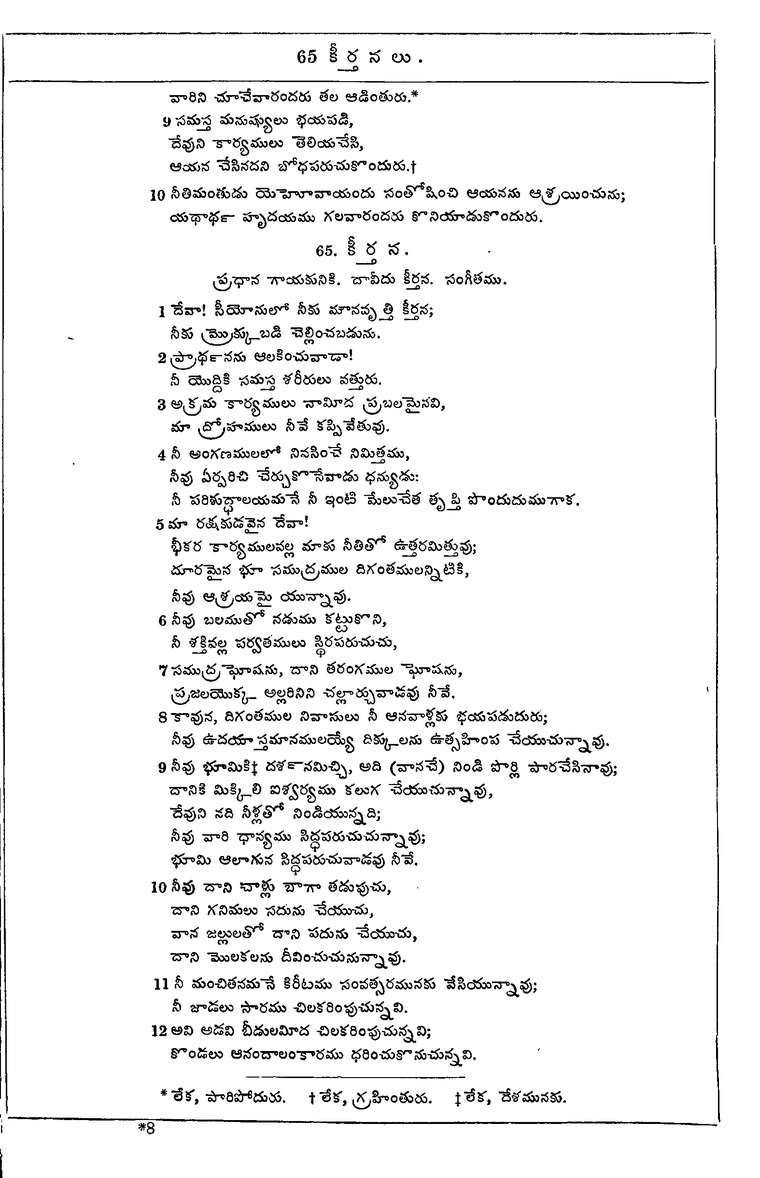 65 కీర్తనలు.
వారిని చూచేవారందరు తల ఆడింతురు.*
9 సమస్త మనుష్యులు భయపడి,
దేవుని కార్యములు తెలియచేసి,
ఆయన చేసినదని బోధపరుచుకొందురు.†
10 నీతిమంతుడు యెహోవాయందు సంతోషించి ఆయనను ఆశ్రయించును;
యథార్థ హృదయము గలవారందరు కొనియాడుకొందురు.
65. కీర్తన.
ప్రధాన గాయకునికి. దావీదు కీర్తన. సంగీతము.
1 దేవా! సీయోనులో నీకు మానవృత్తి కీర్తన;
నీకు మ్రొక్కుబడి చెల్లించబడును.
2 ప్రార్థనను ఆలకించువాడా!
నీ యొద్దికి సమస్త శరీరులు వత్తురు.
3 అక్రమ కార్యములు నామీద ప్రబలమైనవి,
మా ద్రోహములు నీవే కప్పివేతువు.
4 నీ అంగణములలో నినసించే నిమిత్తము,
నీవు ఏర్పరిచి చేర్చుకొనేవాడు ధన్యుడు:
నీ పరిశుద్ధాలయమనే నీ ఇంటి మేలుచేత తృప్తి పొందుదుముగాక.
5 మా రక్షకుడవైన దేవా!
భీకర కార్యములవల్ల మాకు నీతితో ఉత్తరమిత్తువు;
దూరమైన భూ సముద్రముల దిగంతములన్నిటికి,
నీవు ఆశ్రయమై యున్నావు.
6 నీవు బలముతో నడుము కట్టుకొని,
నీ శక్తివల్ల పర్వతములు స్థిరపరుచుచు,
7 సముద్ర ఘోషను, దాని తరంగముల ఘోషను,
ప్రజలయొక్క అల్లరినిని చల్లార్చువాడవు నీవే.
8 కావున, దిగంతముల నివాసులు నీ ఆనవాళ్లకు భయపడుదురు;
నీవు ఉదయాస్తమానములయ్యే దిక్కులను ఉత్సహింప చేయుచున్నావు.
9 నీవు భూమికి‡ దర్శనమిచ్చి, అది (వానచే) నిండి పొర్లి పారచేసినావు;
దానికి మిక్కిలి ఐశ్వర్యము కలుగ చేయుచున్నావు,
దేవుని నది నీళ్లతో నిండియున్నది;
నీవు వారి ధాన్యము సిద్ధపరుచుచున్నావు;
భూమి ఆలాగున సిద్ధపరుచువాడవు నీవే.
10 నీవు దాని చాళ్లు బాగా తడుపుచు,
దాని గనిమలు సదును చేయుచు,
వాన జల్లులతో దాని పదును చేయుచు,
దాని మొలకలను దీవించుచునున్నావు.
11 నీ మంచితనమనే కిరీటము సంవత్సరమునకు వేసియున్నావు;
నీ జాడలు సారము చిలకరింపుచున్నవి.
12 అవి అడవి బీడులమీద చిలకరింపుచున్నవి;
కొండలు ఆనందాలంకారము ధరించుకొనుచున్నవి.
* లేక, పారిపోదురు. † లేక, గ్రహింతురు. ‡ లేక, దేశమునకు.
*8